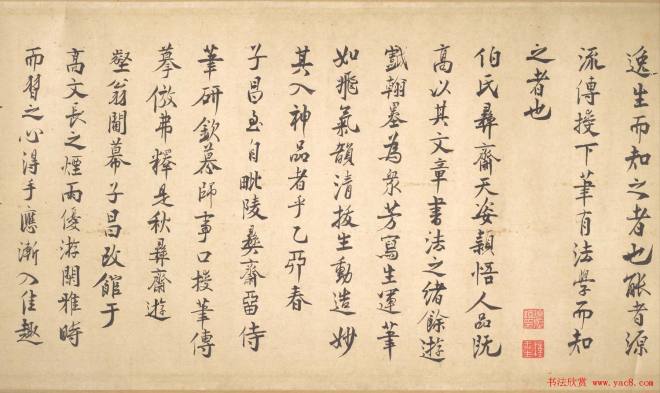 逸生而知之者也能者源
流傳授下筆有法學而知
之者也
伯氏彛齋天姿穎悟人品既
高以其文章書法之緒餘遊
戲翰墨為衆芳寫生運筆
如飛氣韻清拔生動造妙
其入神品者乎乙丣春
子昌至自毗陵彛齋畱侍
筆研欽慕師事口授筆傳
摹倣弗釋是秋彛齋遊
壑翁閫幕子昌改館于
高文長之煙雨優游閑雅時
而習之心得手應漸入佳趣
书法欣赏 www.yac8.com